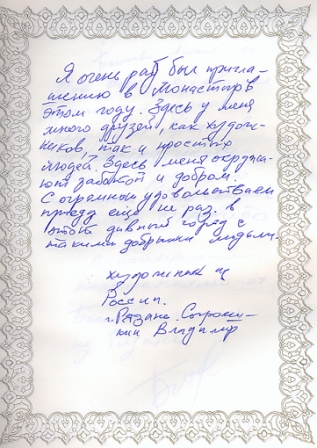 Я очень рад был пригла-
шению в Монастир в
этом году. Здесь у меня
много друзей, как худож-
ников, так и простых
людей. Здесь меня окружа-
ют заботой и добром.
С огромным удовольствием
приеду ещё не раз в
этот дивный город с
такими добрыми людьми.
художник из
России.
г. Рязань
Владимир